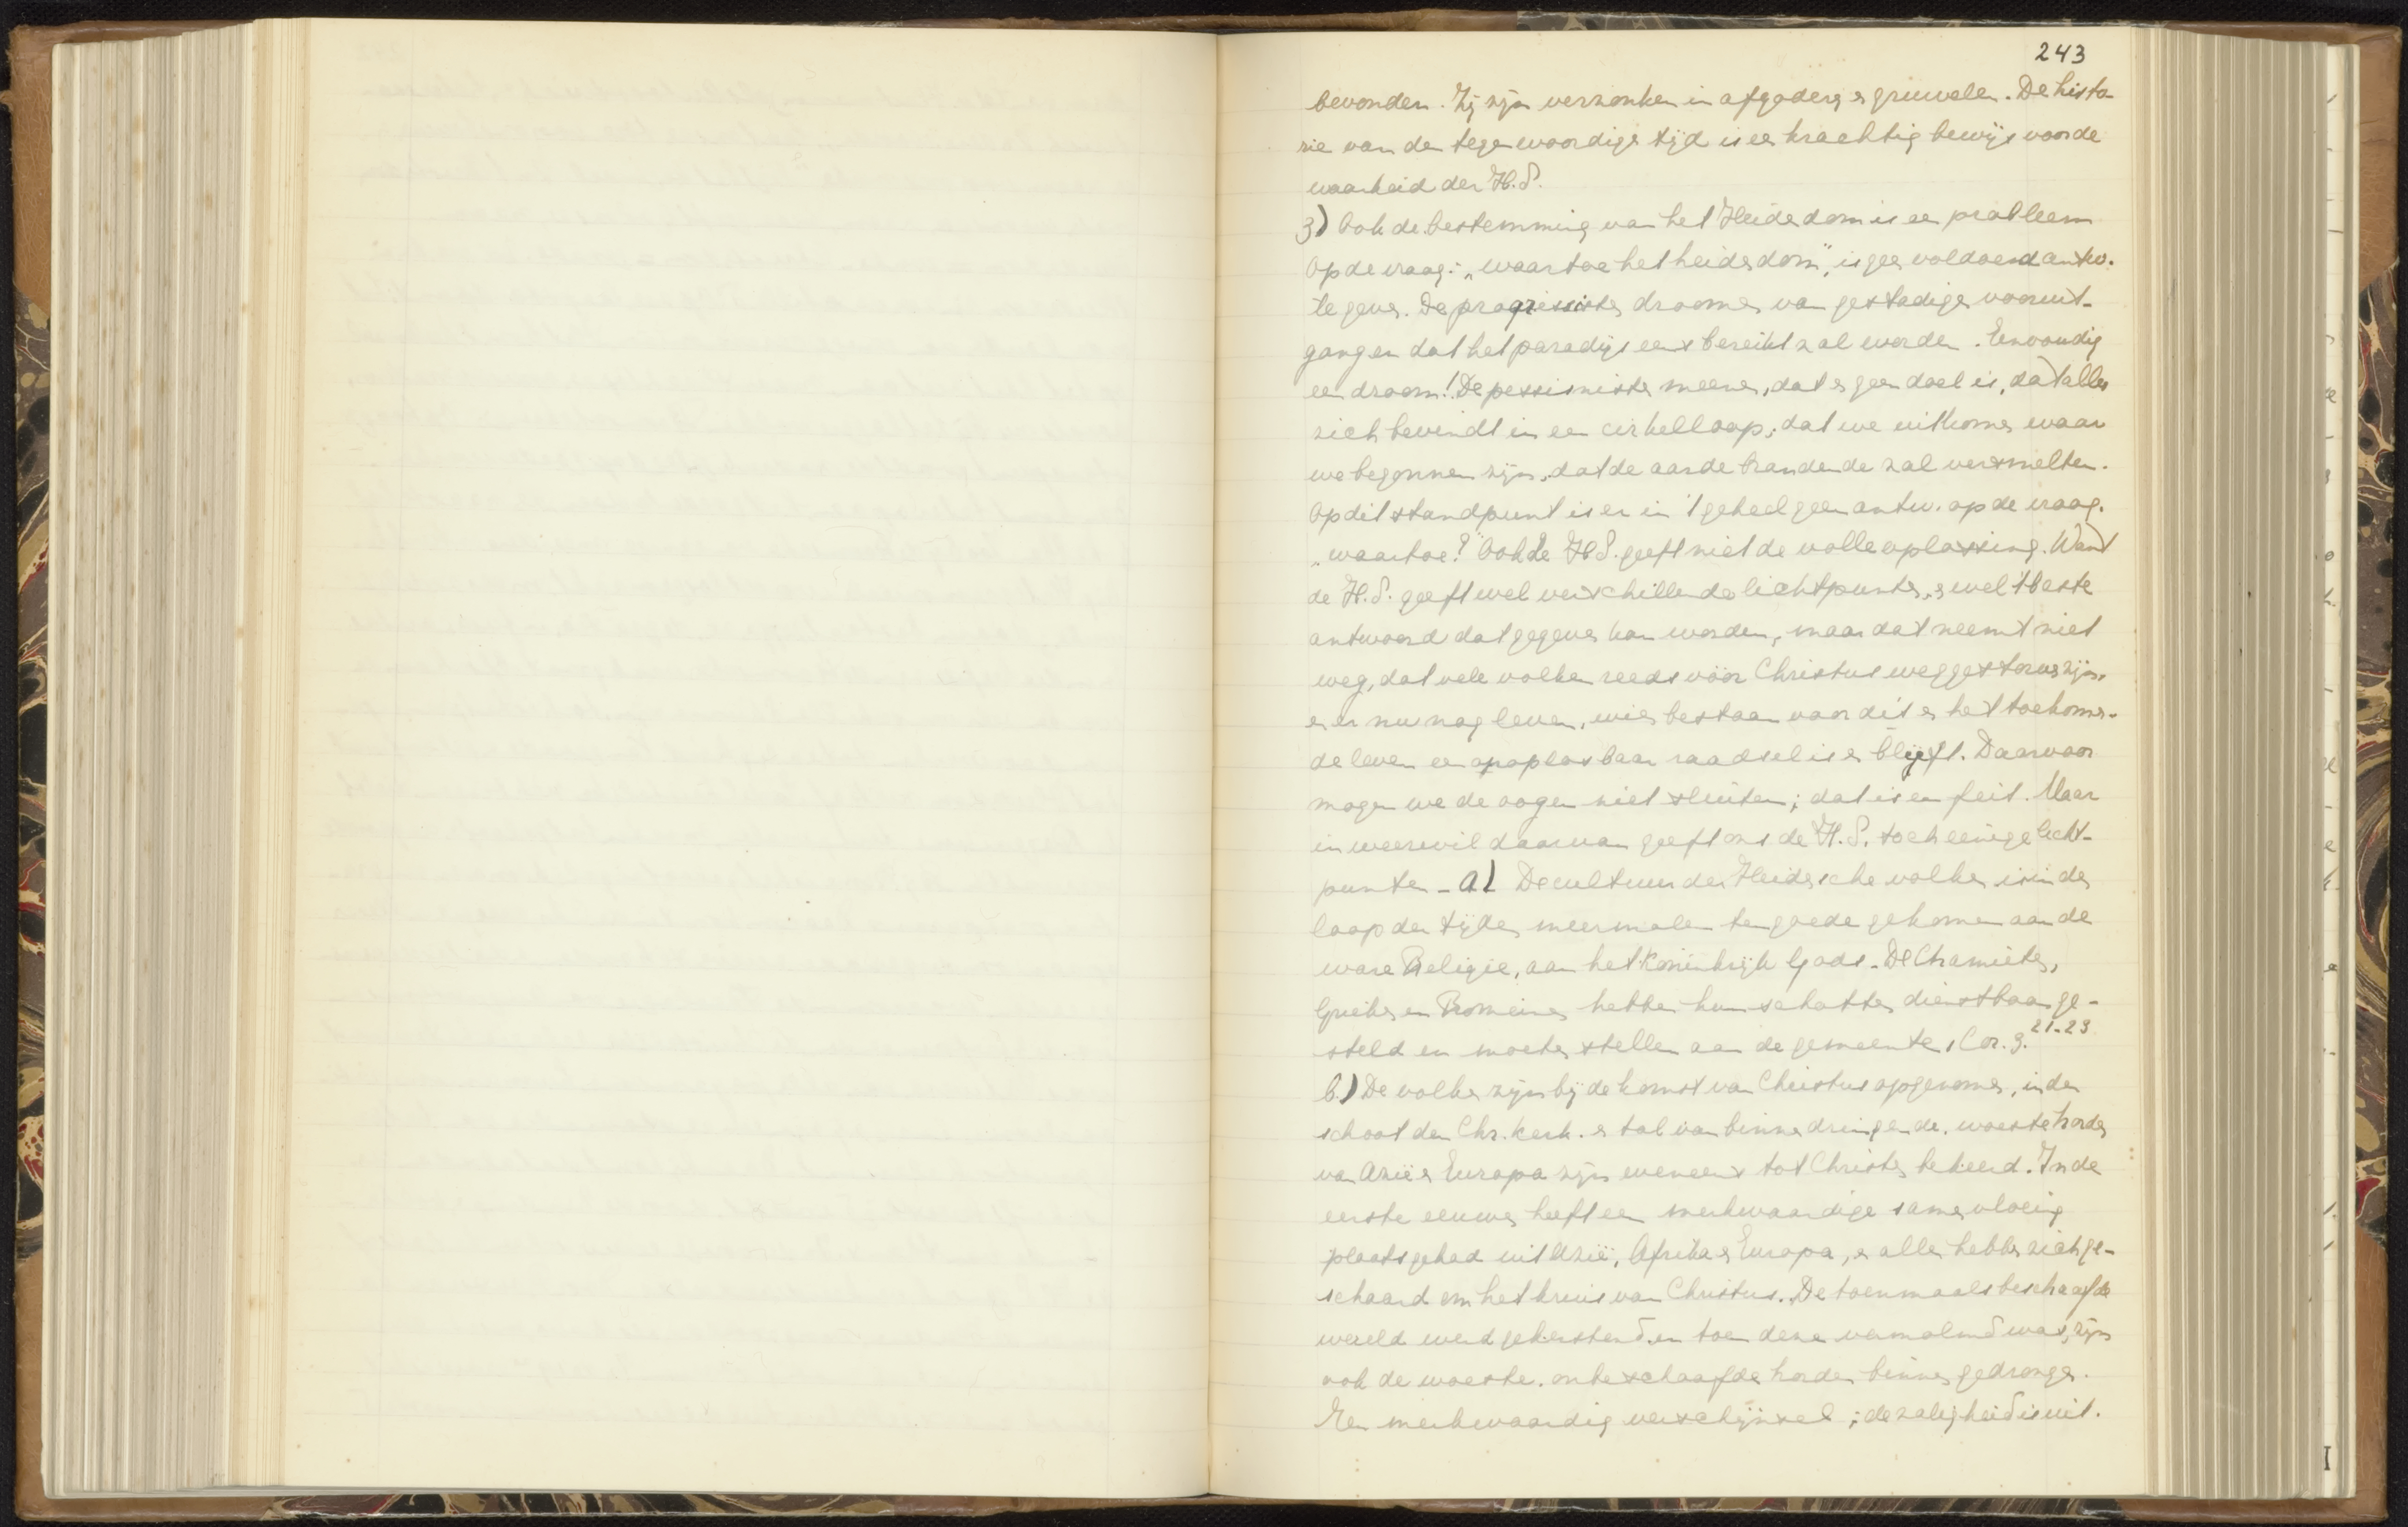 243
bevonden. Zij zijn verzonken in afgoderij en gruwelen. De histo-
rie van den tegenwoordigen tijd is een krachtig bewijs voor de
waarheid der H.S.
3) Ook de bestemming van het Heidendom is een probleem
Op de vraag: „waartoe het heidendom", is geen voldoend antw.
te geven. De progressisten droomen van gestadigen vooruit-
gang en dat het paradijs eens bereikt zal worden. Eenvoudig
een droom! De pessimisten meenen, dat er geen doel is, dat alles
zich bevindt in een cirkelloop; dat we uitkomen waar
we begonnen zijn, dat de aarde brandende zal versmelten.
Op dit standpunt is er in 't geheel geen antw. op de vraag.
„waartoe?" Ook de H.S. geeft niet de volle oplossing. Want
de H.S. geeft wel verschillende lichtpunten, en wel 't beste
antwoord dat gegeven kan worden, maar dat neemt niet
weg, dat vele volken reeds vóór Christus weggestorven zijn,
en er nu nog leven, wier bestaan voor dit en het toekomen-
de leven een onoplosbaar raadsel is en blijft. Daarvoor
mogen we de oogen niet sluiten; dat is een feit. Maar
in weerwil daarvan geeft ons de H.S. toch eenige licht-
punten - a) De cultuur der Heidensche volken is in den
loop der tijden meermalen ten goede gekomen aan de
ware Religie, aan het Koninkrijk Gods. De Chamieten,
Grieken en Romeinen hebben hun schatten dienstbaar ge-
steld en moeten stellen aan de gemeente, 1 Cor. 3. 21-23
b.) De volken zijn bij de komst van Christus opgenomen, in den
schoot der Chr. kerk. en tal van binnendringende, woeste horden
van Azië en Europa zijn eveneens tot Christus bekeerd. In de
eerste eeuwen heeft een merkwaardige samenvloeing
plaats gehad uit Azië, Afrika en Europa, en allen hebben zich ge-
schaard om het kruis van Christus. De toenmaals beschaafde
wereld werd gekerstend en toen deze vermolmd was, zijn
ook de woeste, onbeschaafde horden binnen gedrongen.
Een merkwaardig verschijnsel; de zaligheid is uit.